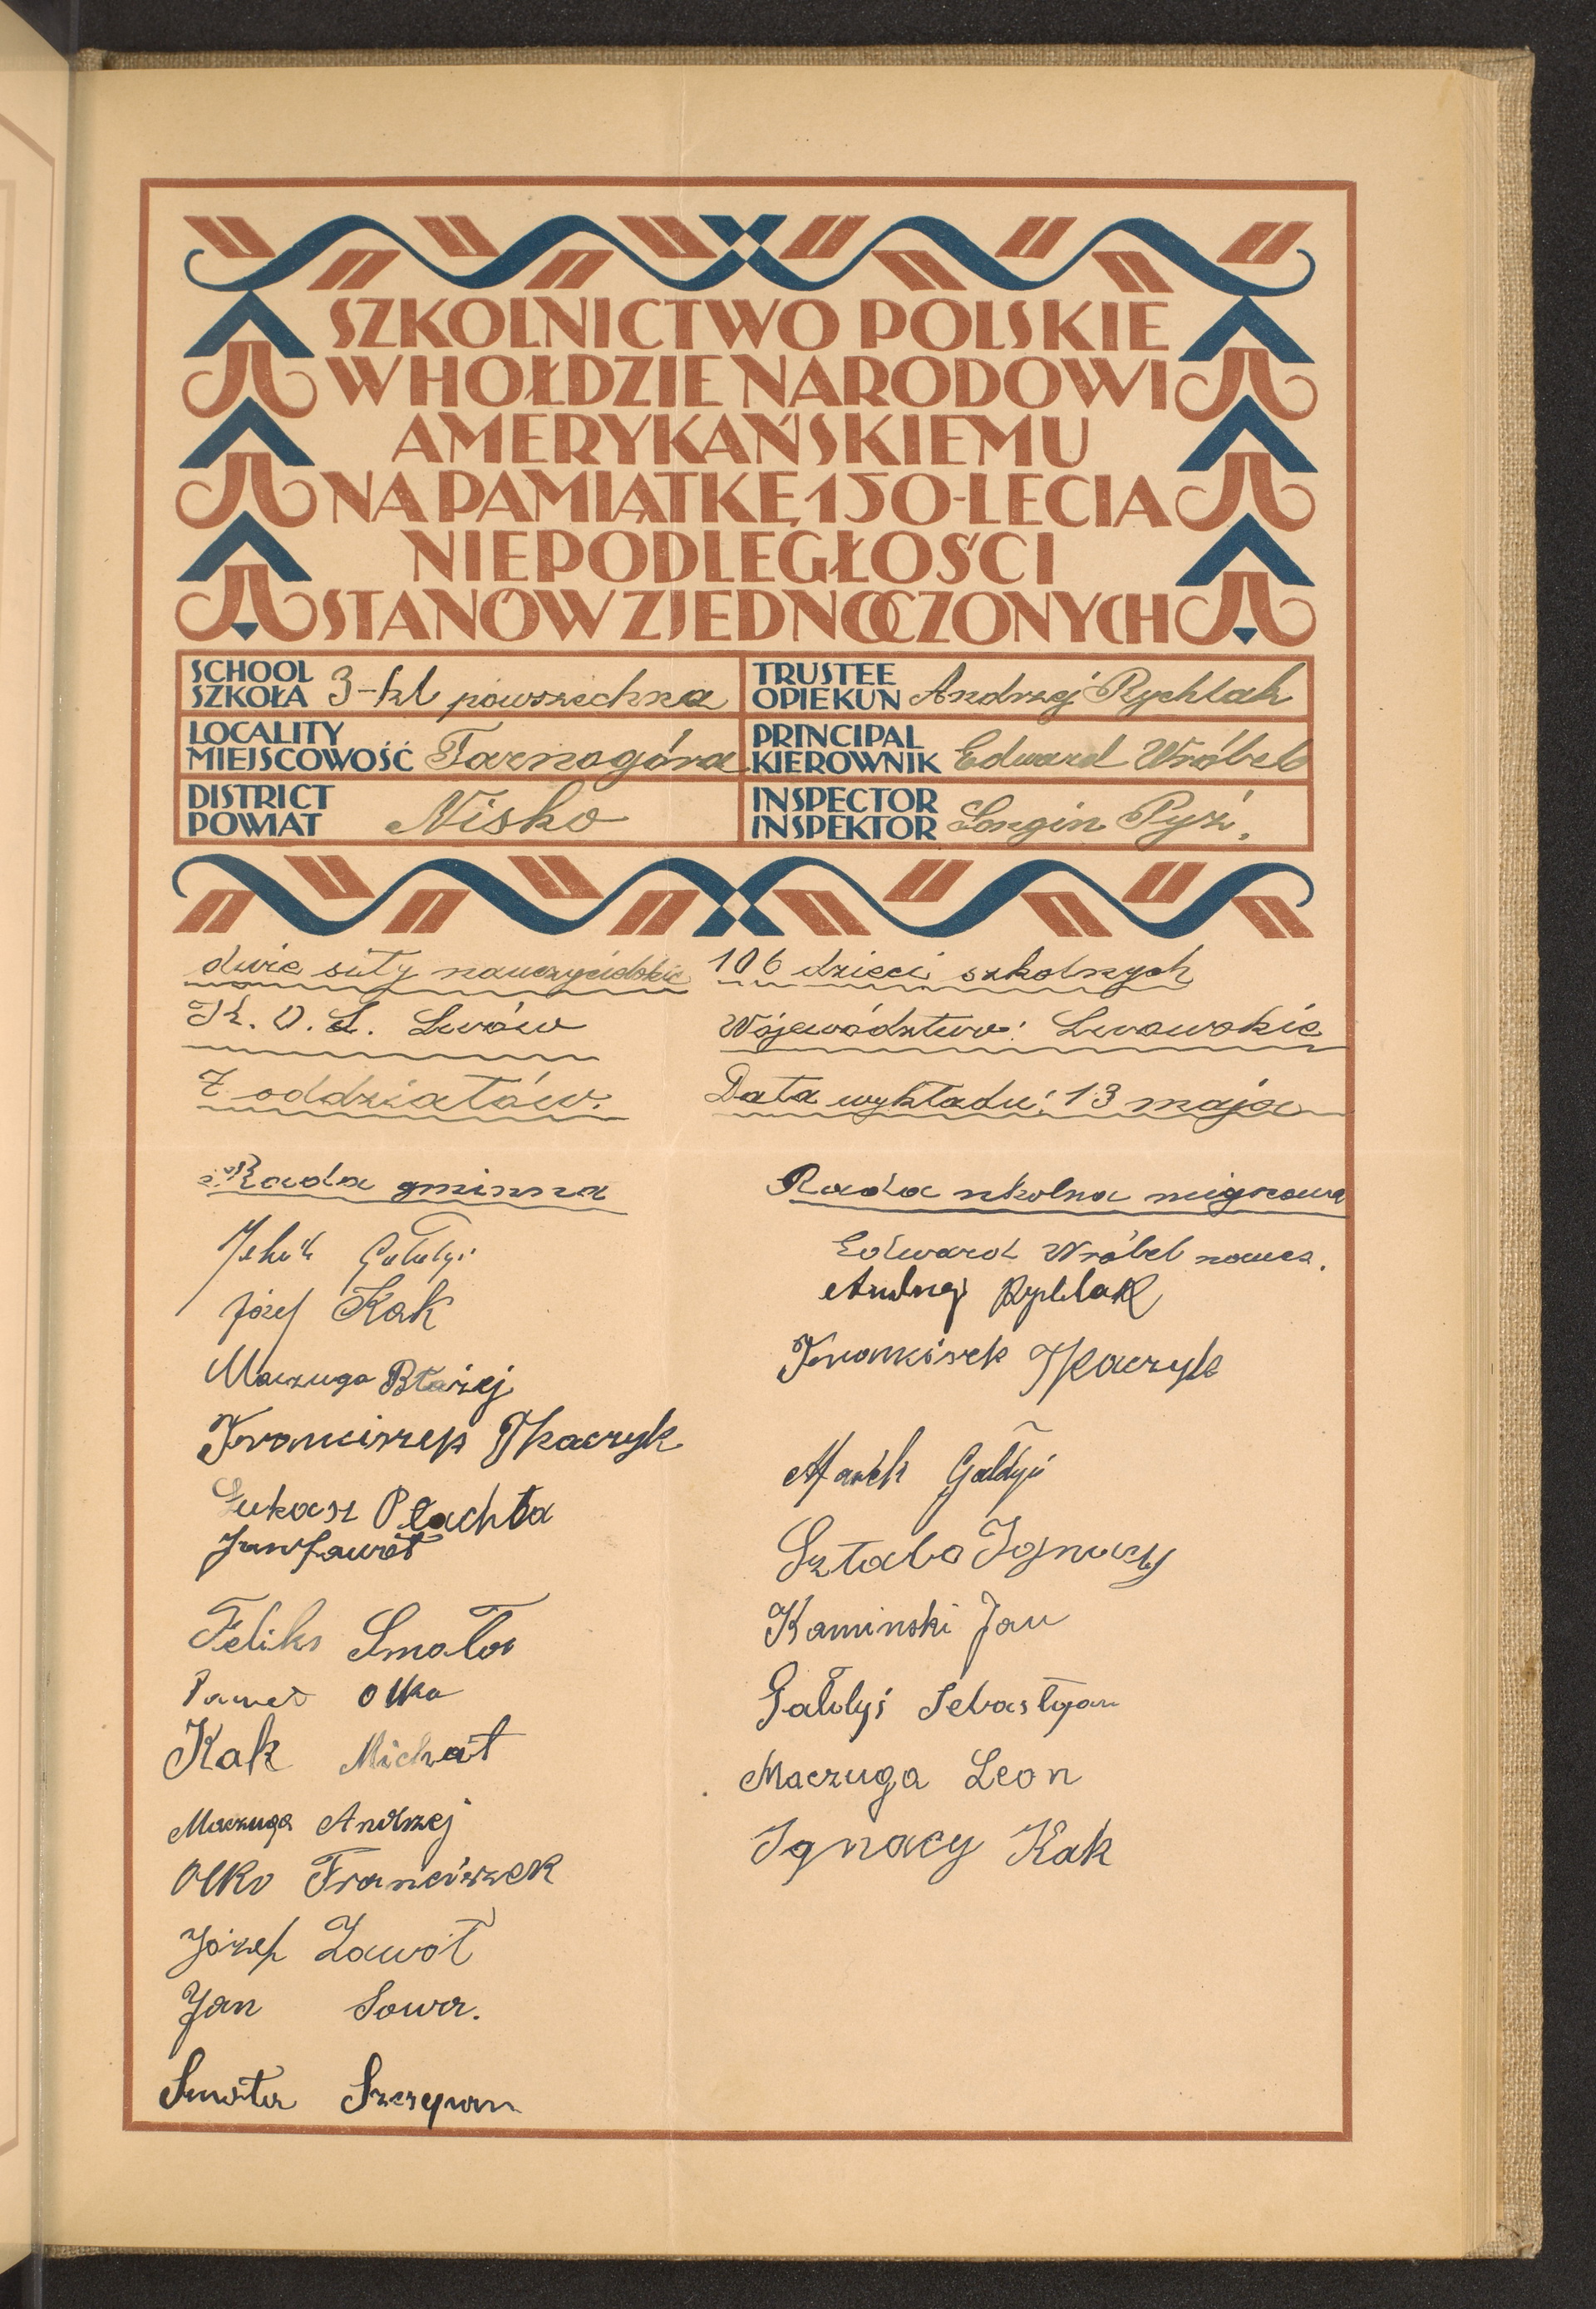 SZKOLNICTWO POLSKIE
W HOŁDZIE NARODOWI
AMERYKAŃSKIEMU
NA PAMIĄTKĘ 150-LECIA
NIEPODLEGŁOŚCI
STANÓW ZJEDNOCZONYCH
SCHOOL
SZKOŁA 3-kl powszechna
TRUSTEE
OPIEKUN Andrzej Rychlak
LOCALITY
MIEJSCOWOŚĆ Tarnogóra
PRINCIPAL
KIEROWNIK Edward Wróbel
DISTRICT
POWIAT Nisko
INSPECTOR
INSPEKTOR Longin Pyź.
dwie siły nauczycielskie
K. O. S. Lwów
7 oddziałów.
106 dzieci szkolnych
Województwo: Lwowskie
Data wykładu: 13 maja
Rada gminna
Józef Kak
Maczuga Błażej
Franciszek Tkaczyk
Łukasz Płachta
Jan
Feliks Smoła
Paweł Olko
Kak Michał
Maczuga Andrzej
Olko Franciszek
Józef Zawół
Jan Sowa.
Szczepan
Rada szkolna miejscowa
Edward Wróbel naucz.
Andrzej Rychlak
Franciszek Tkaczyk
Gałdyś
Sztaba Ignacy
Kaminski Jan
Gałdyś Sebastyan
Maczuga Leon
Ignacy Kak